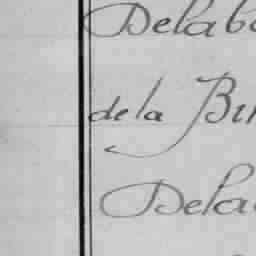 Delab
de la Bu
Dela